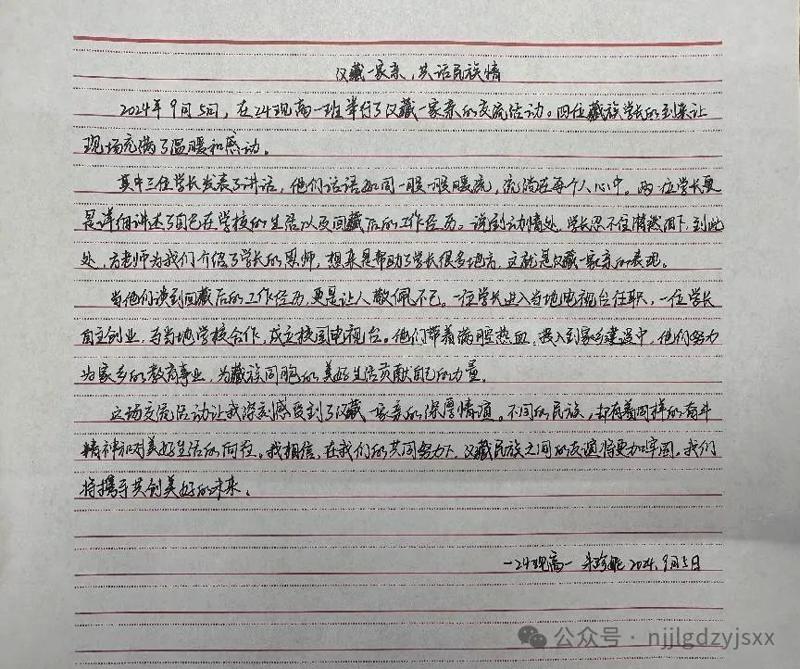 汉藏一家亲，共话民族情
2024年9月5日，在24现高一班举行了汉藏一家亲的交流活动。四位藏族学长的到来让
现场充满了温暖和感动。
其中三位学长发表了讲话，他们话语如同一股股暖流，流淌在每个人心中。两位学长更
是详细讲述了自己在学校的生活以及回藏后的工作经历。说到动情处，学长忍不住潸然泪下，到此
处，方老师为我们介绍了学长的恩师，想来是帮助了学长很多地方，这就是汉藏一家亲的表现。
当他们谈到回藏后的工作经历，更是让人敬佩不已。一位学长进入当地电视台任职，一位学长
自主创业，与当地学校合作，成立校园电视台。他们带着满腔热血，投入到家乡建设中，他们努力
为家乡的教育事业，为藏族同胞的美好生活贡献自己的力量。
这场交流活动让我深刻感受到了汉藏一家亲的深厚情谊。不同的民族，却有着同样的奋斗
精神和对美好生活的向往。我相信，在我们的共同努力下，汉藏民族之间的友谊将更加牢固，我们
将携手共创美好的未来。
—24现高一 朱珍 2024.9月5日
公众号 · njjlgdzyjsxx